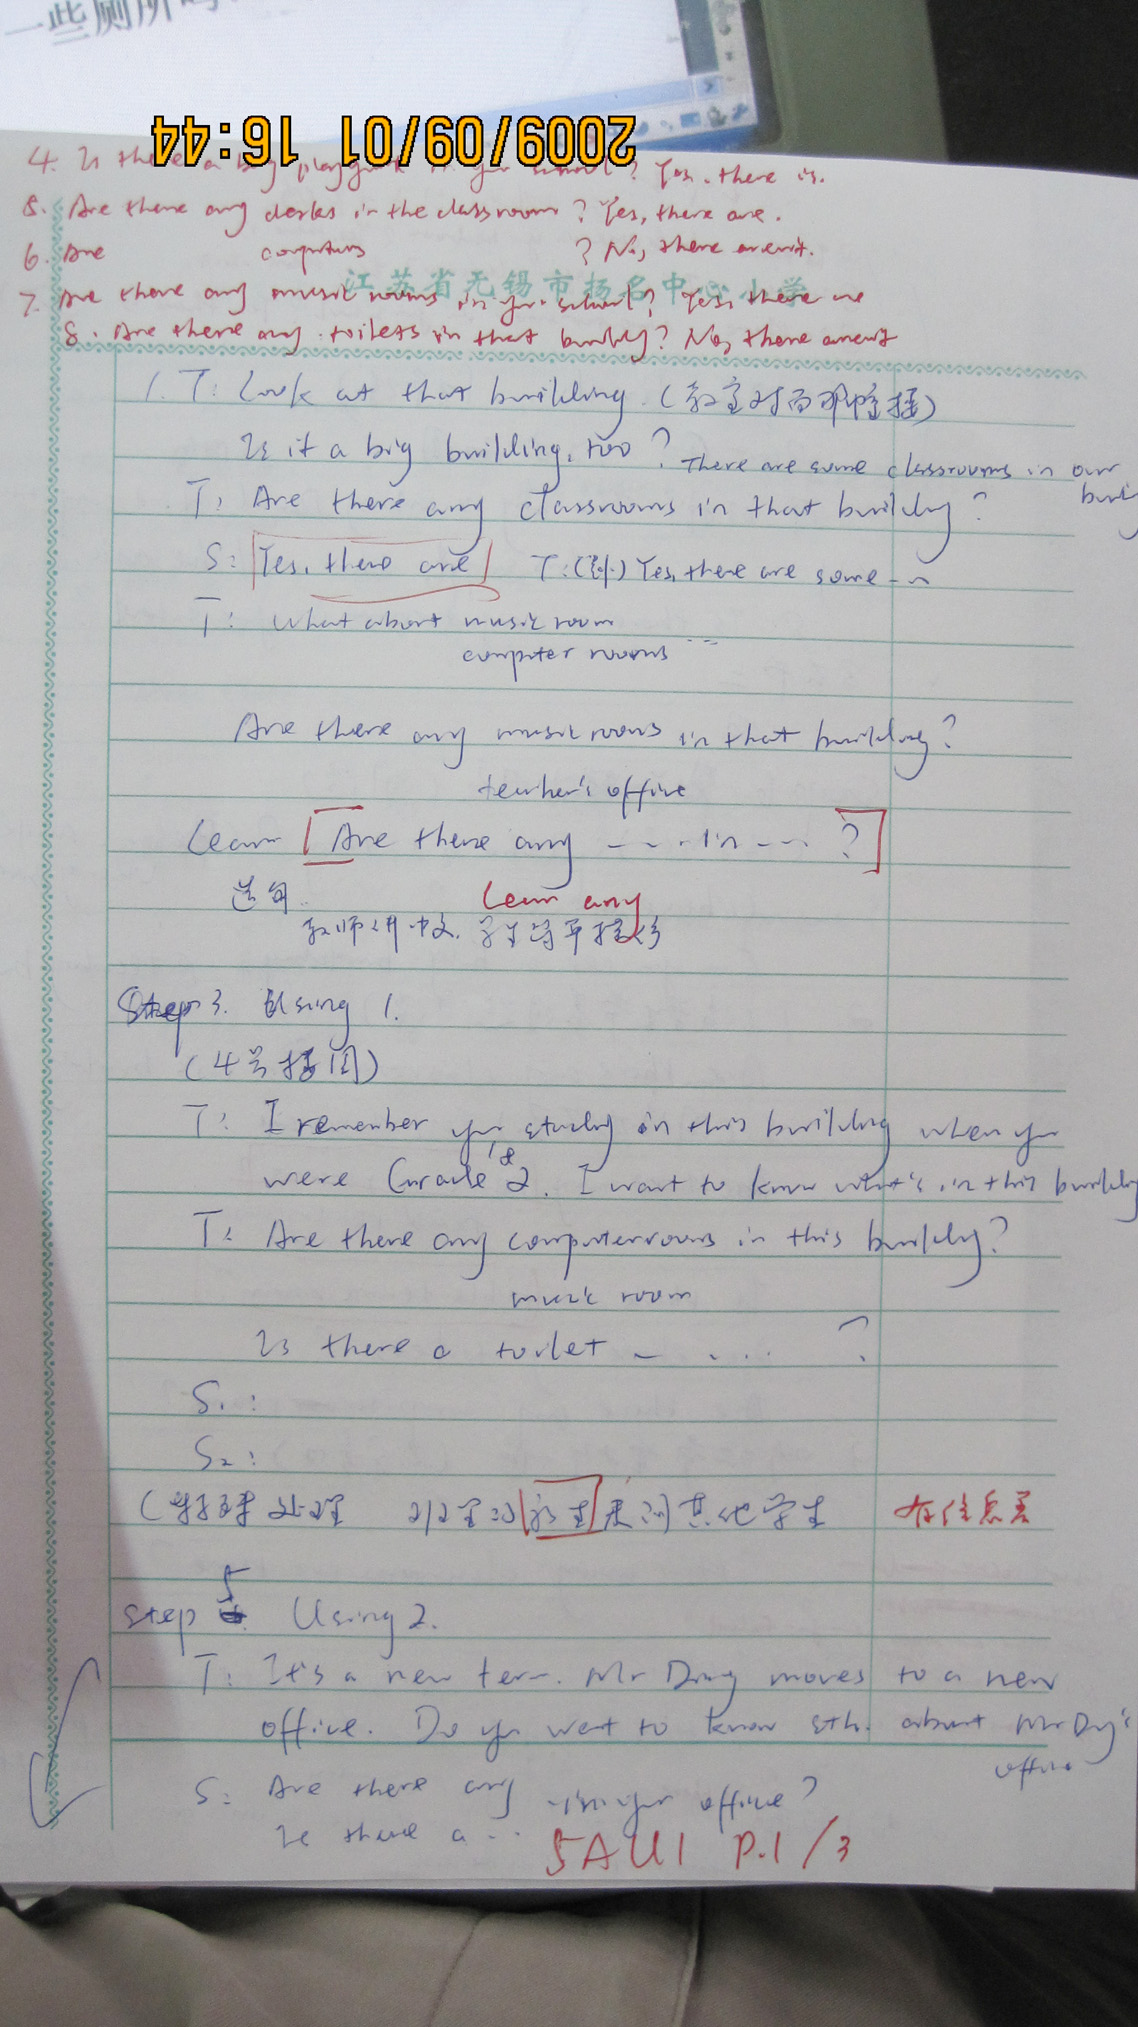 一些厕所
2009/09/01 16:44
4. Is there a big playground in your school? Yes, there is.
5. Are there any desks in the classroom? Yes, there are.
6. Are computers ? No, there aren't.
江苏省无锡市扬名中心小学
7. Are there any music rooms in your school? Yes, there are
8. Are there any toilets in that building? No, there aren't
1. T: Look at that building. (教室对面那幢楼)
Is it a big building, too? There are some classrooms in our
T: Are there any classrooms in that building?
S: Yes, there are T: Yes, there are some --
T: What about music room
computer rooms ...
Are there any music rooms in that building?
teacher's office
Learn Are there any ---- in --- ?
Learn any
教师讲中文.
Step 3. Using 1.
(4号楼图)
T: I remember you study in this building when you
were Grade 1&2. I want to know what's in this building
T: Are there any computer rooms in this building?
music room
Is there a toilet - ... ?
S1:
S2:
处理 来问其他学生 有信息差
Step 5 Using 2.
T: It's a new term. Mr Ding moves to a new
office. Do you want to know sth. about Mr Ding's
office
S: Are there any - in your office?
Is there a ...
5A U1 P.1/3